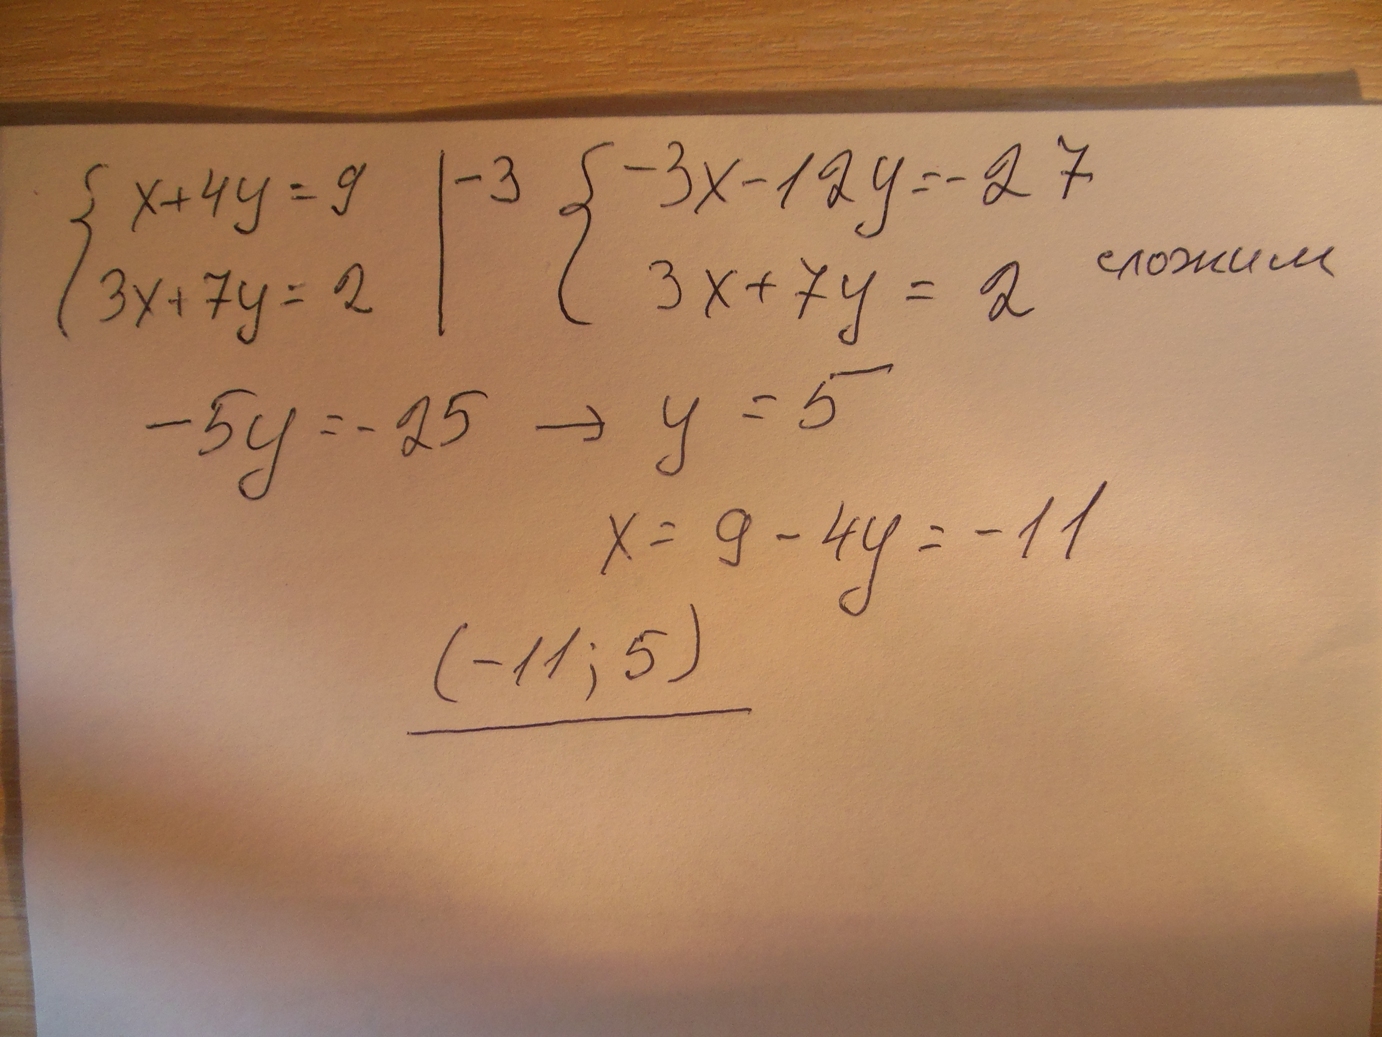 { x+4y=9 | -3 { -3x-12y=-27
3x+7y=2 3x+7y=2 сложим
-5y=-25 → y=5
x=9-4y=-11
(-11; 5)